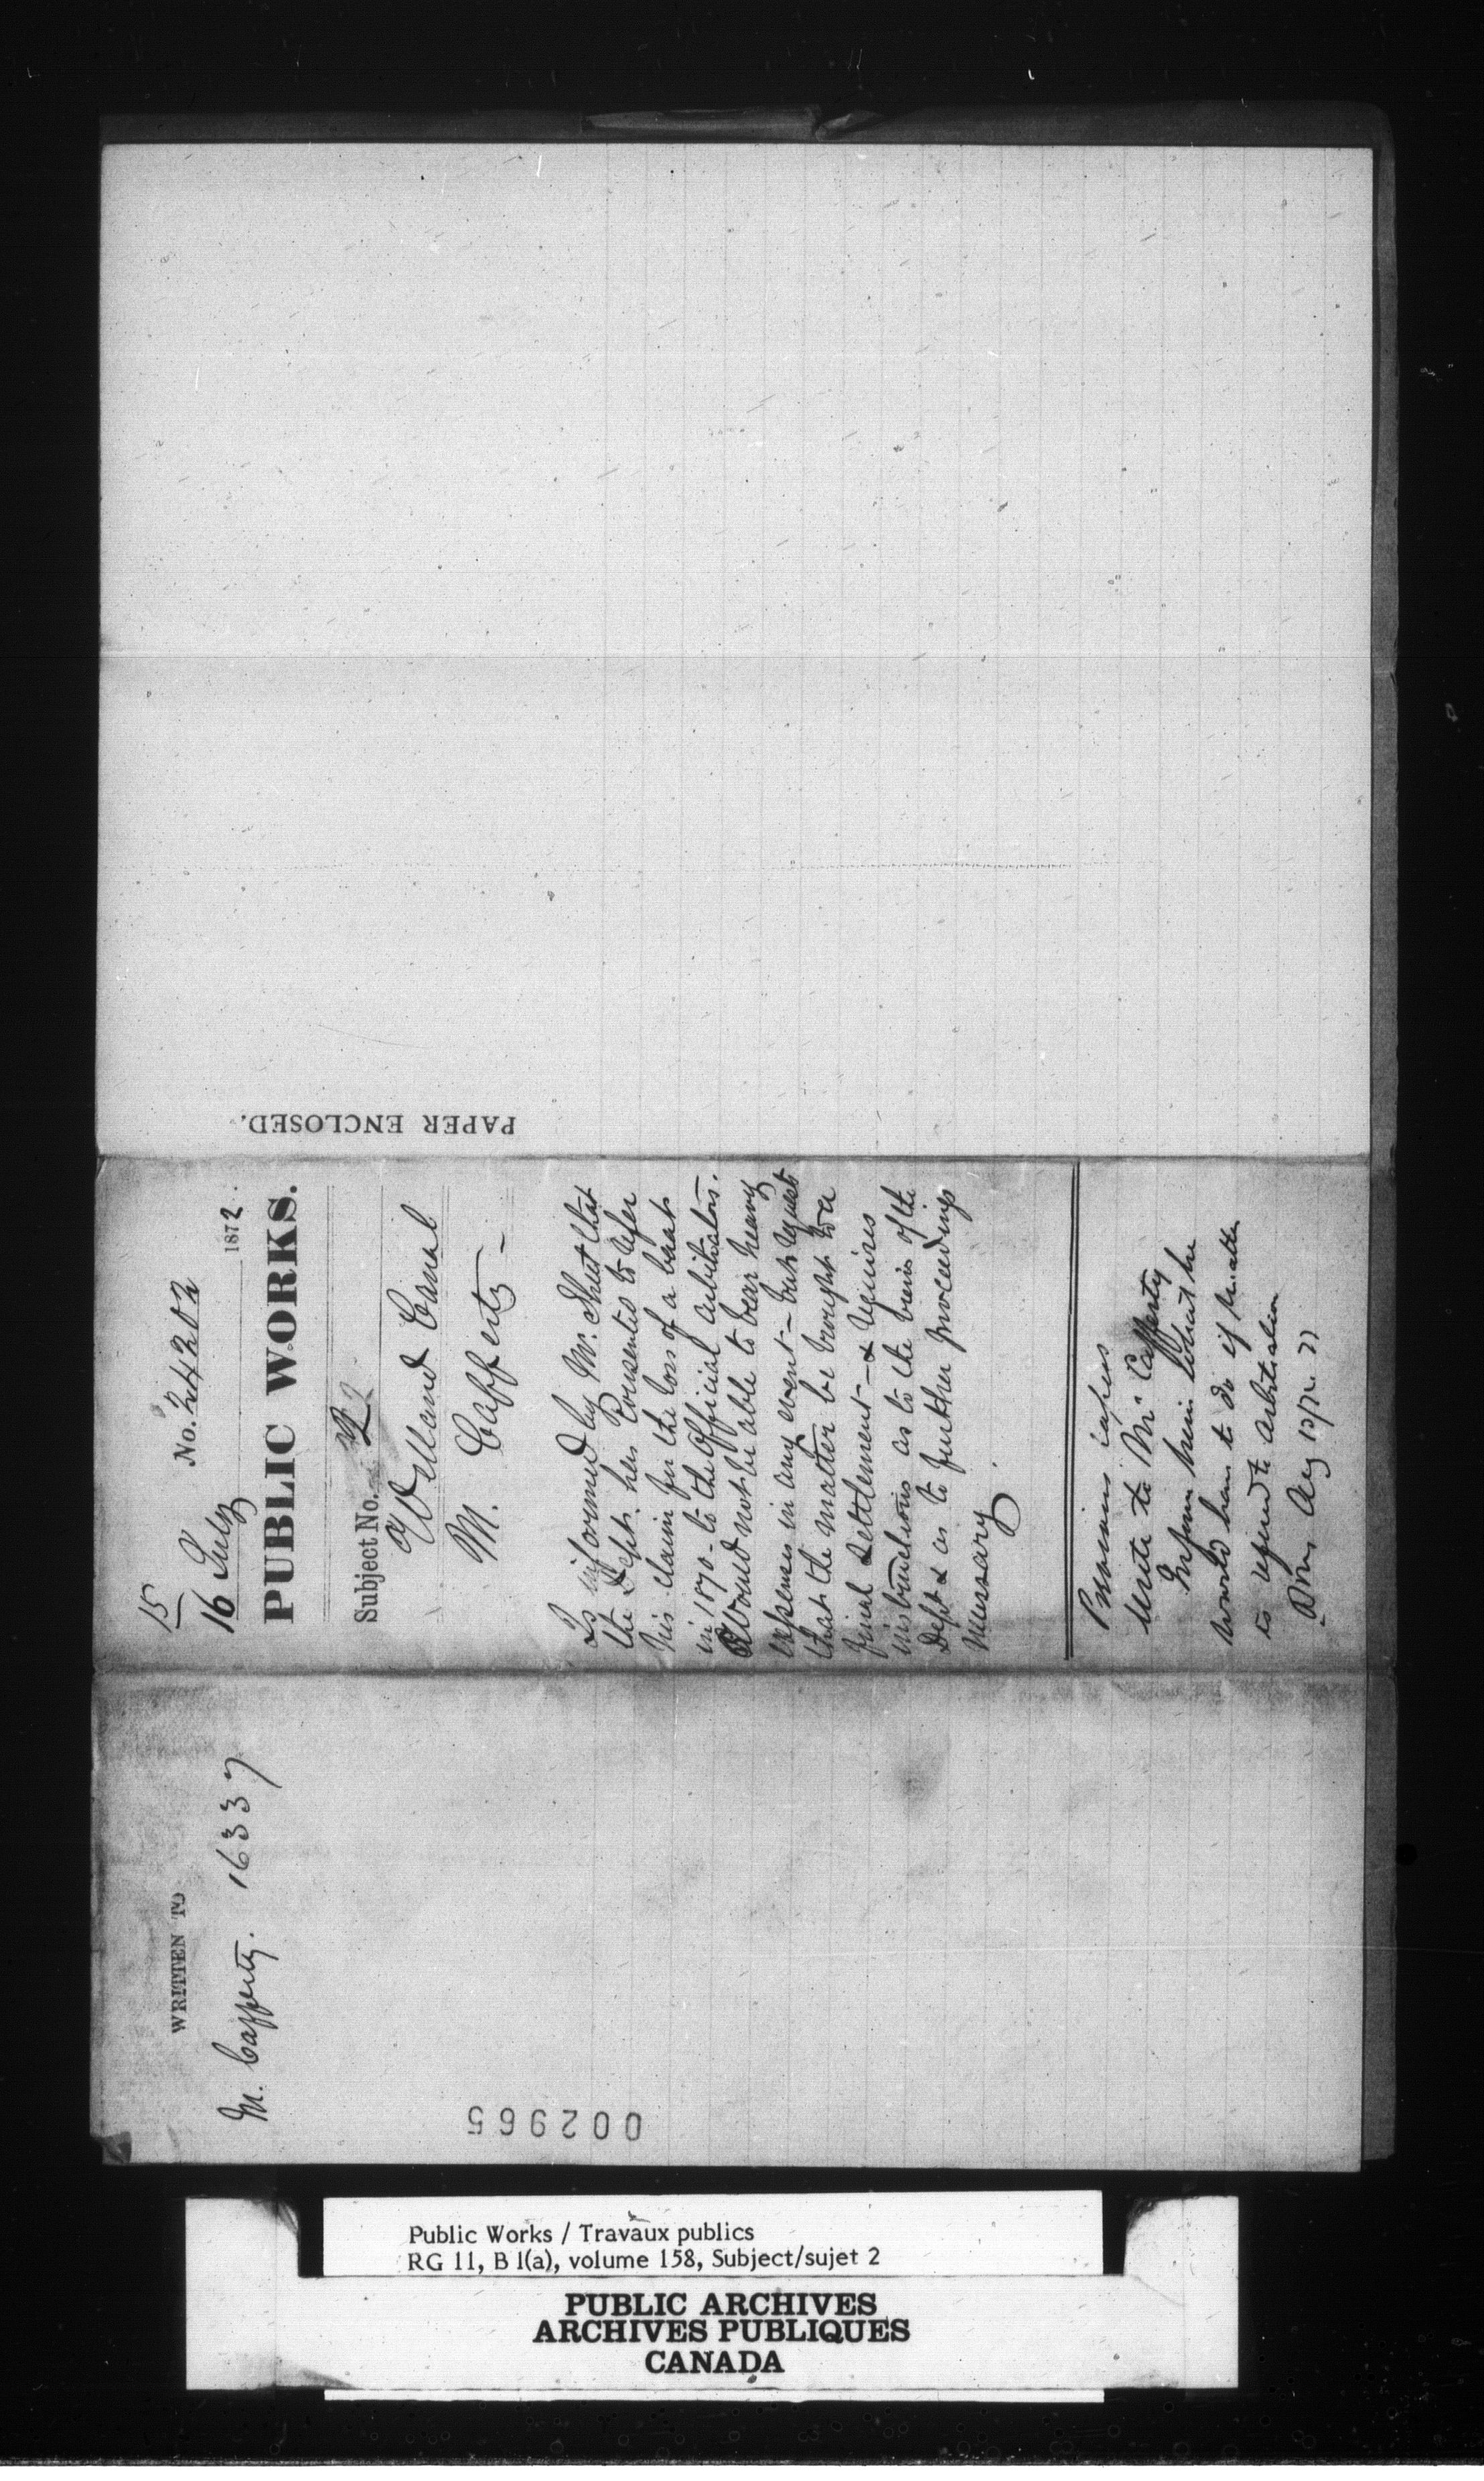 15
No. 24202
16 July 1872.
PUBLIC WORKS.
Subject No. 2
Welland Canal
M. Cafferty -
Is informed by Mr. Shut that
the Dept. has consented to refer
his claim for the loss of a boat
in 1870 - to the Official Arbitrators.
Would not be able to bear heavy
expenses in any event - but requests
that the matter be brought to a
final settlement - & requires
instructions as to the views of the
Dept & as to further proceedings
necessary.
Previous papers
Write to Mr Cafferty
Inform him what he
would have to do if matter
is referred to arbitration
Aug 13/72
PAPER ENCLOSED.
WRITTEN TO
M. Cafferty. 16337
002965
Public Works / Travaux publics
RG 11, B 1(a), volume 158, Subject/sujet 2
PUBLIC ARCHIVES
ARCHIVES PUBLIQUES
CANADA